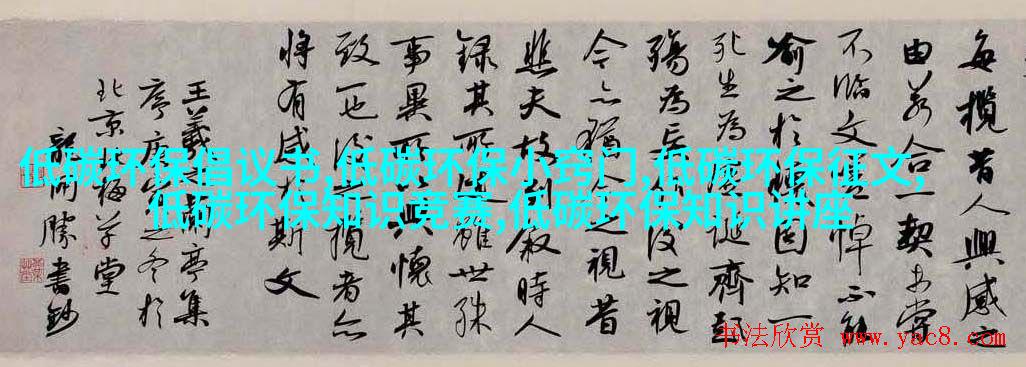 每攬昔人興感之
由若合一契未嘗
不臨文嗟悼不能
喻之於懷固知一
死生為虛誕齊彭
殤為妄作後之視
今亦猶今之視昔
悲夫故列敘時人
錄其所述雖世殊
事異所以興懷其
致一也後之攬者亦
將有感於斯文
王羲之蘭亭集
序庚之冬於
北京梅草堂
同勝書鈔
低碳环保倡议书,低碳环保小窍门,低碳环保征文,
低碳环保知识竞赛,低碳环保知识讲座
书法欣赏 www.yac8.com